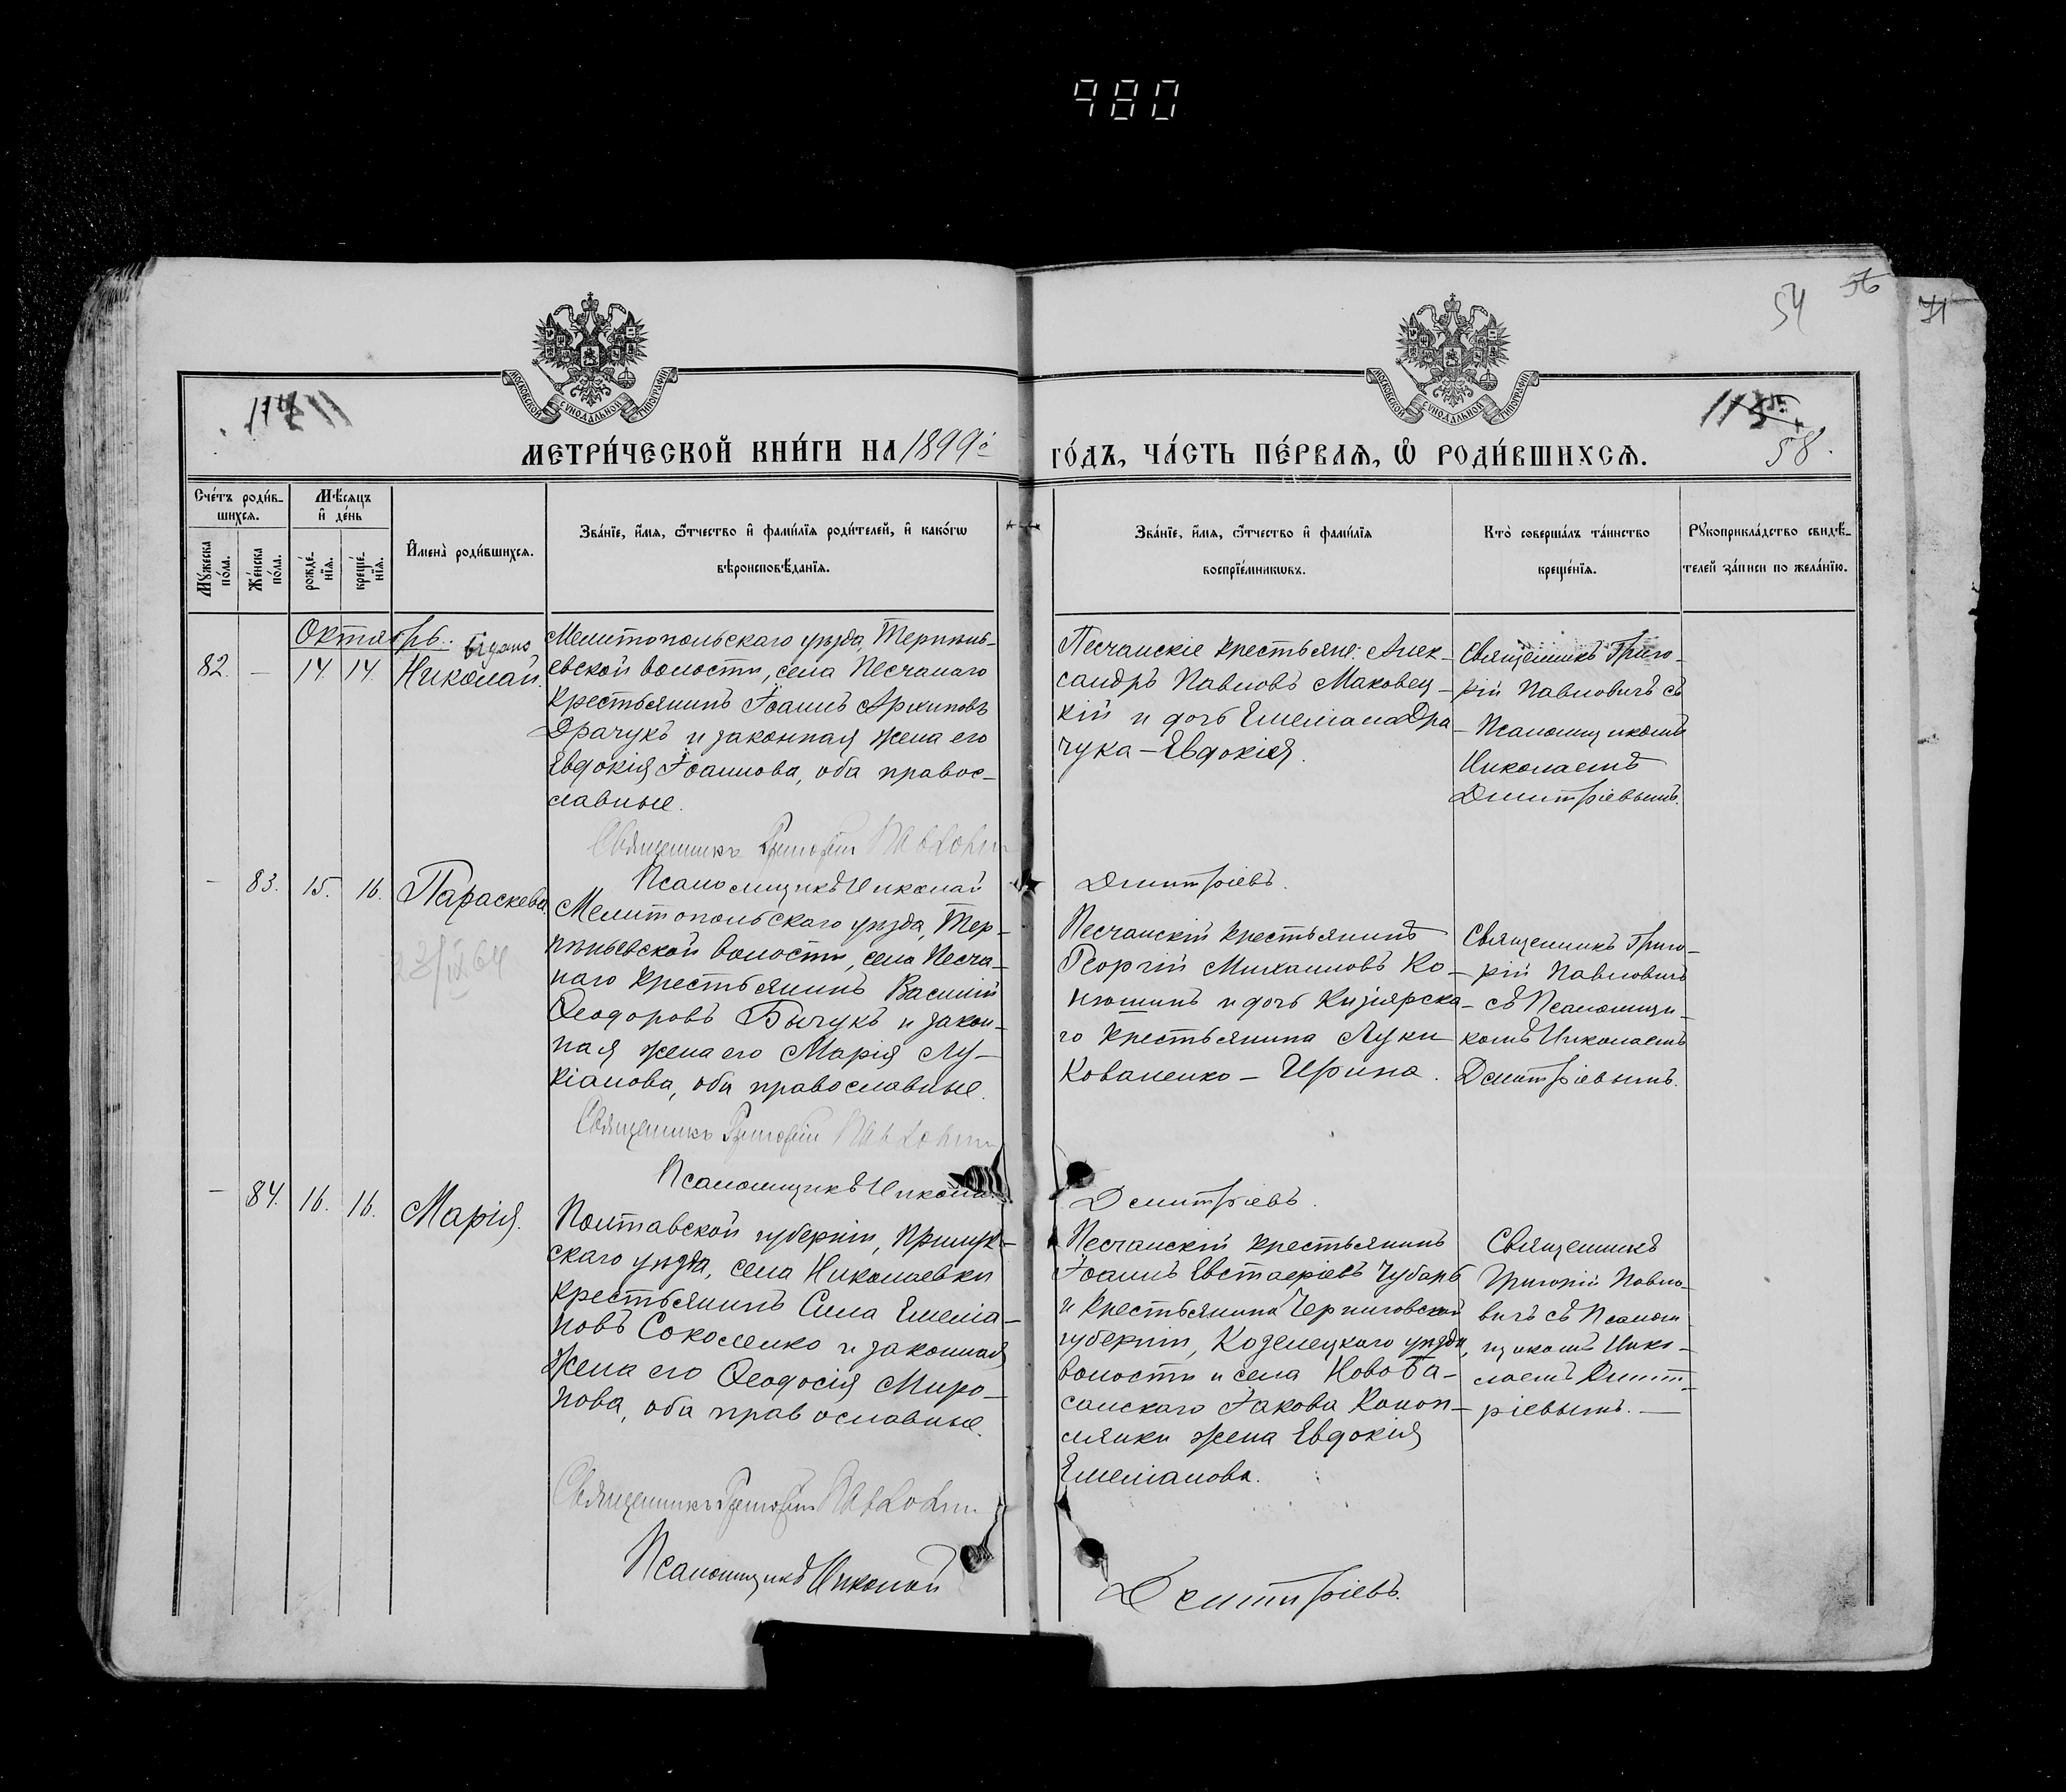 980
54
56
71
МОСКОВСКОЙ СѴНОДАЛЬНОЙ ТИПОГРАФІИ
МОСКОВСКОЙ СѴНОДАЛЬНОЙ ТИПОГРАФІИ
58.
МЕТРИ́ЧЕСКОЙ КНИ́ГИ НА 1899й
ГО́ДЪ, ЧА́СТЬ ПЕ́РВАѦ, Ѡ҆ РОДИ́ВШИХСѦ.
Сче́тъ роди́в-
шихсѧ.
Мѣ́сяцъ
и҆ де́нь
И҆мена̀ роди́вшихсѧ.
Зва́нїе, и҆́мѧ, ѻ҆́тчество и҆ фами́лїѧ роди́телей, и҆ како́гѡ
вѣроисповѣ́данїѧ.
Мꙋ́жеска по́ла.
Же́нска по́ла.
рожде́-
нїѧ.
креще́-
нїѧ.
Зва́нїе, и҆́мѧ, ѻ҆́тчество и҆ фами́лїѧ
воспрїе́мникѡвъ.
Кто̀ соверша́лъ та́инство
креще́нїѧ.
Рꙋкоприкла́дство свидѣ́-
телей за́писи по жела́нїю.
Октябрь.
видано
82. — 14. 14. Николай.
Мелитопольскаго уѣзда, Терпѣнь-
евской волости, села Песчанаго
крестьянинъ Іоаннъ Архиповъ
Драчукъ и законная жена его
Евдокія Іоаннова, оба правос-
лавные.
Священникъ Григорій Павлович
Псаломщикъ Николай
Песчанскіе крестьяне: Алек-
сандръ Павловъ Маковец-
кій и дочь Емеліана Дра-
чука — Евдокія.
Дмитріевъ.
Священникъ Григо-
рій Павловичъ съ
Псаломщикомъ
Николаемъ
Дмитріевымъ.
— 83. 15. 16. Параскева.
23/IX 64
Мелитопольскаго уѣзда, Тер-
пѣньевской волости, села Песча-
наго крестьянинъ Василій
Ѳеодоровъ Бычукъ и закон-
ная жена его Марія Лу-
кіанова, оба православные.
Священникъ Григорій Павлович
Псаломщикъ Никола
Песчанскій крестьянинъ
Георгій Михаиловъ Ко-
нюшинъ и дочь Кизіярска-
го крестьянина Луки
Коваленко — Ирина.
Дмитріевъ.
Священникъ Григо-
рій Павловичъ
съ Псаломщи-
комъ Николаемъ
Дмитріевымъ.
— 84. 16. 16. Марія.
Полтавской губерніи, Прилук-
скаго уѣзда, села Николаевки
крестьянинъ Сила Емеліа-
новъ Соколенко и законная
жена его Ѳеодосія Миро-
нова, оба православные.
Священникъ Григорій Павлович
Псаломщикъ Николай
Песчанскій крестьянинъ
Іоаннъ Евстаѳіевъ Чубарь
и крестьянина Черниговской
губерніи, Козелецкаго уѣзда,
волости и села Новоба-
санскаго Іакова Коноп-
лянки жена Евдокія
Емеліанова.
Дмитріевъ.
Священникъ
Григорій Павло-
вичъ съ Псалом-
щикомъ Нико-
лаемъ Дмит-
ріевымъ. —